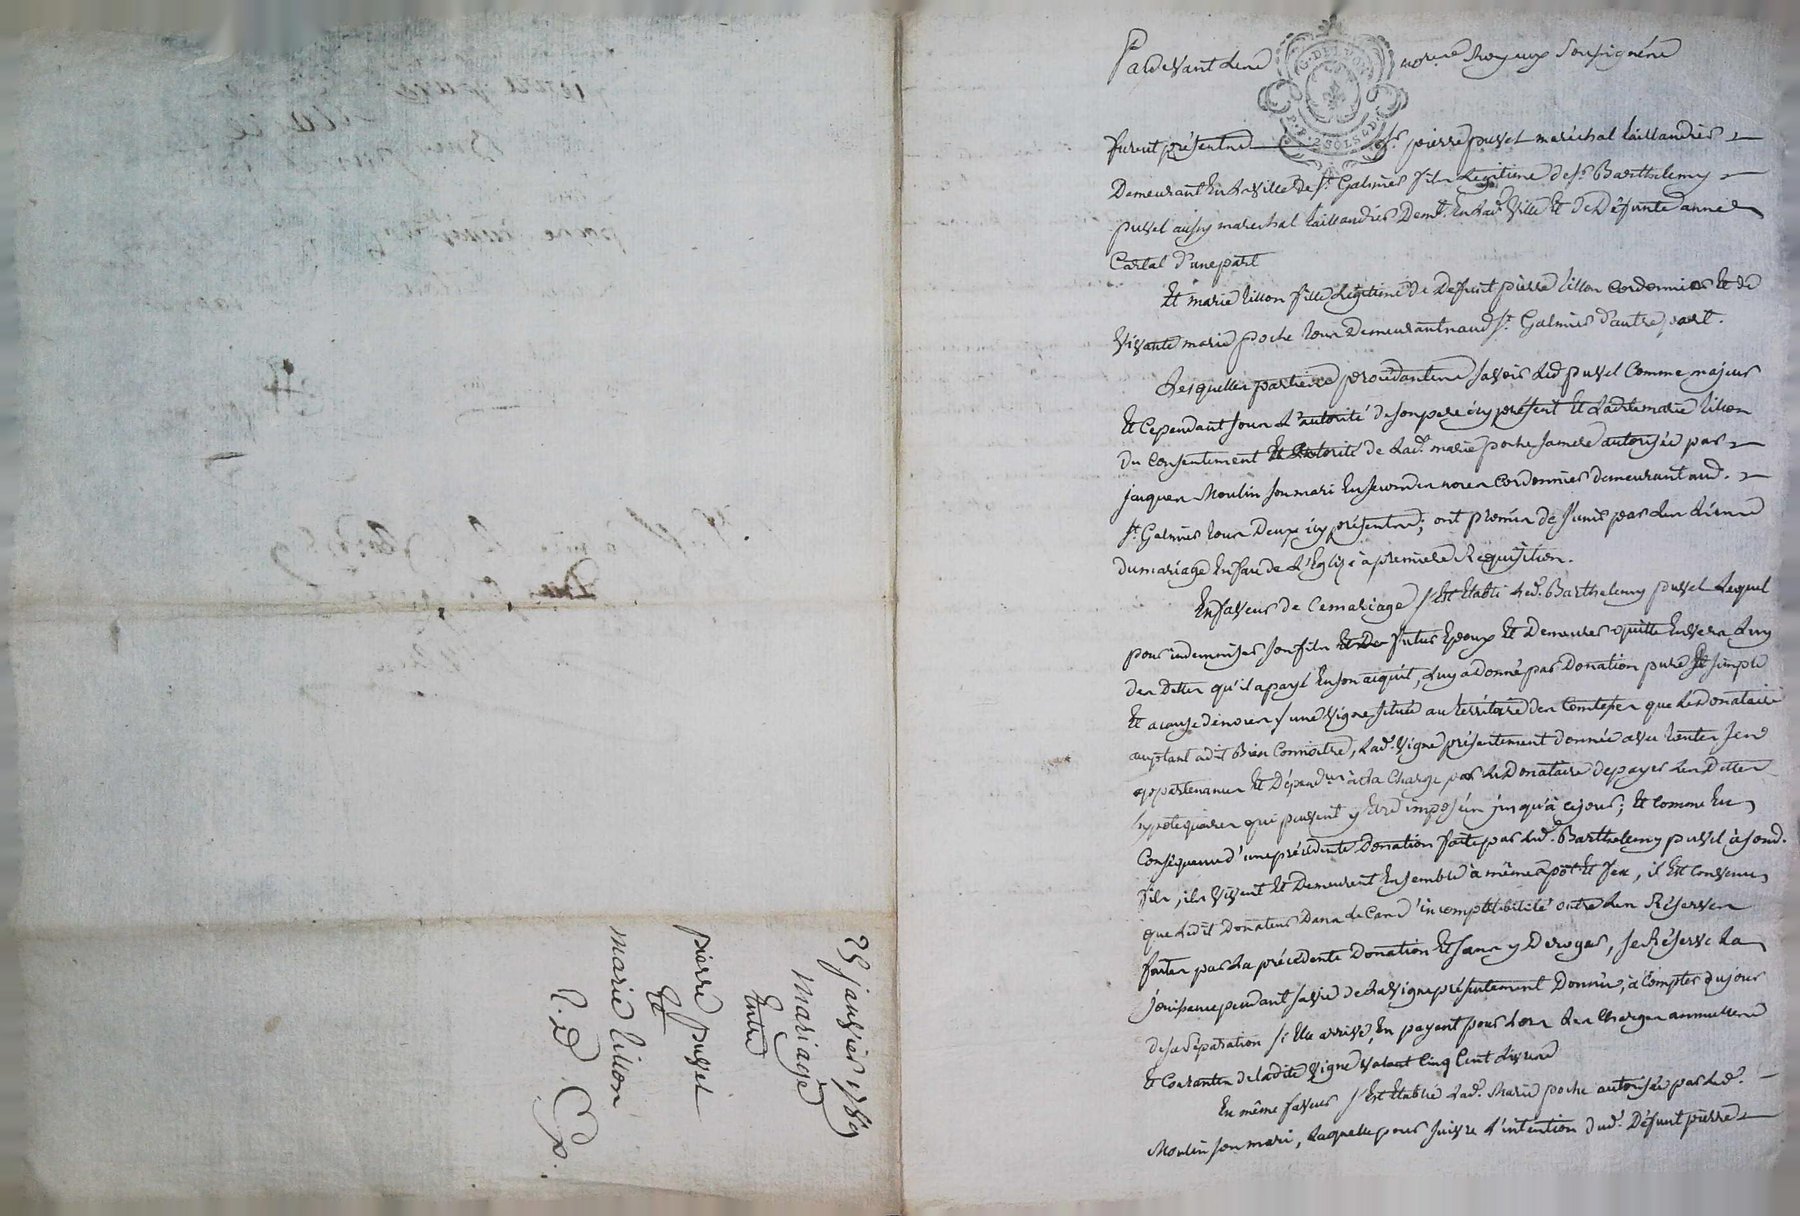 Pardevant Les notres Royaux Soussignés
G. DE LYON
P.P. 2 SOLS 4 D
furent présents Sr. pierre puvel maréchal taillandier
Demeurant En la ville de St. Galmier fils Legitime de Sr Barthelemy
puvel aussy marechal taillandier Demt. En lad. Ville Et de Défunte anne
Cartal d'une part
Et marie tillon fille Legitime de Defunt pierre tillon Cordonnier Et de
Vivante marie poche tous Demeurant aud St. Galmier d'autre part.
Lesquelles parties procédantes savoir Led puvel Comme majeur
Et Cependant sous L'autorité de son pere icy présent Et Ladite marie tillon
Du Consentement Et autorité de Lad. marie poche sa mere autorisée par
jacques Moulin son mari En secondes noces Cordonnier demeurant aud.
St. Galmier tous Deux icy présents; ont promis de s'unir par Les Liens
du mariage En face de L'Eglise à premiere Requisition.
En faveur de Ce mariage s'Est Etabli Led. Barthelemy puvel Lequel
pour indemniser son fils futur Epoux Et Demeurer quitte Envers Luy
des Dettes qu'il a payé En son acquit, Luy a donné par Donation pure Et simple
Et a cause de noces une Vigne située au territoire des que Le donataire
acceptant a dit Bien Connoitre, Lad. Vigne présentement donnée avec toutes ses
appartenances Et Dépendces à la Charge par Le Donataire de payer Les Dettes
hypotequaires qui peuvent y Etre imposées jusqu'à ce jour; Et Comme En
Conséquence d'une précédente Donation faite par Led. Barthelemy puvel à sond.
fils, ils Vivent Et Demeurent Ensemble à même pot Et feu, il Est Convenu
que Ledit Donateur Dans Le Cas d'incompatibilité outre Les Réserves
faites par La précédente Donation Et sans y Deroger, se Réserve La
jouissance pendant sa vie de La Vigne présentement Donnée, à Compter du jour
de la séparation si Elle arrive, En payant pour Lors Les Charges annuelles
Et Courantes de ladite Vigne Valant Cinq Cent Livres
En même faveur s'Est Etablie Lad. Marie poche autorisée par Led.
Moulin son mari, Laquelle pour suivre L'intention dud. Défunt pierre
25 janvier 1789
Mariage
Entre
pierre puvel
Et
marie tillon